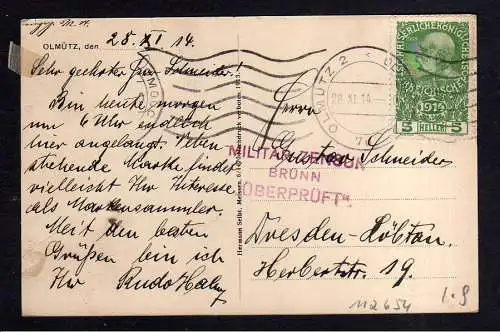 OLMÜTZ, den 28. XI 14.
Sehr geehrter Herr Schneider!
Bin heute morgen
um 6 Uhr endlich
hier angelangt. Neben
stehende Marke findet
vielleicht Ihr Interesse
als Markensammler.
Mit den besten
Grüßen bin ich
Ihr Rudo
Herrn
Gustav Schneider
Dresden-Löbtau,
Herbertstr. 19.
MILITÄR-ZENSUR
BRÜNN
"ÜBERPRÜFT".
OLMÜTZ 2
28. XI. 14
OLOMOUC
1914
5 HELLER 5
112654